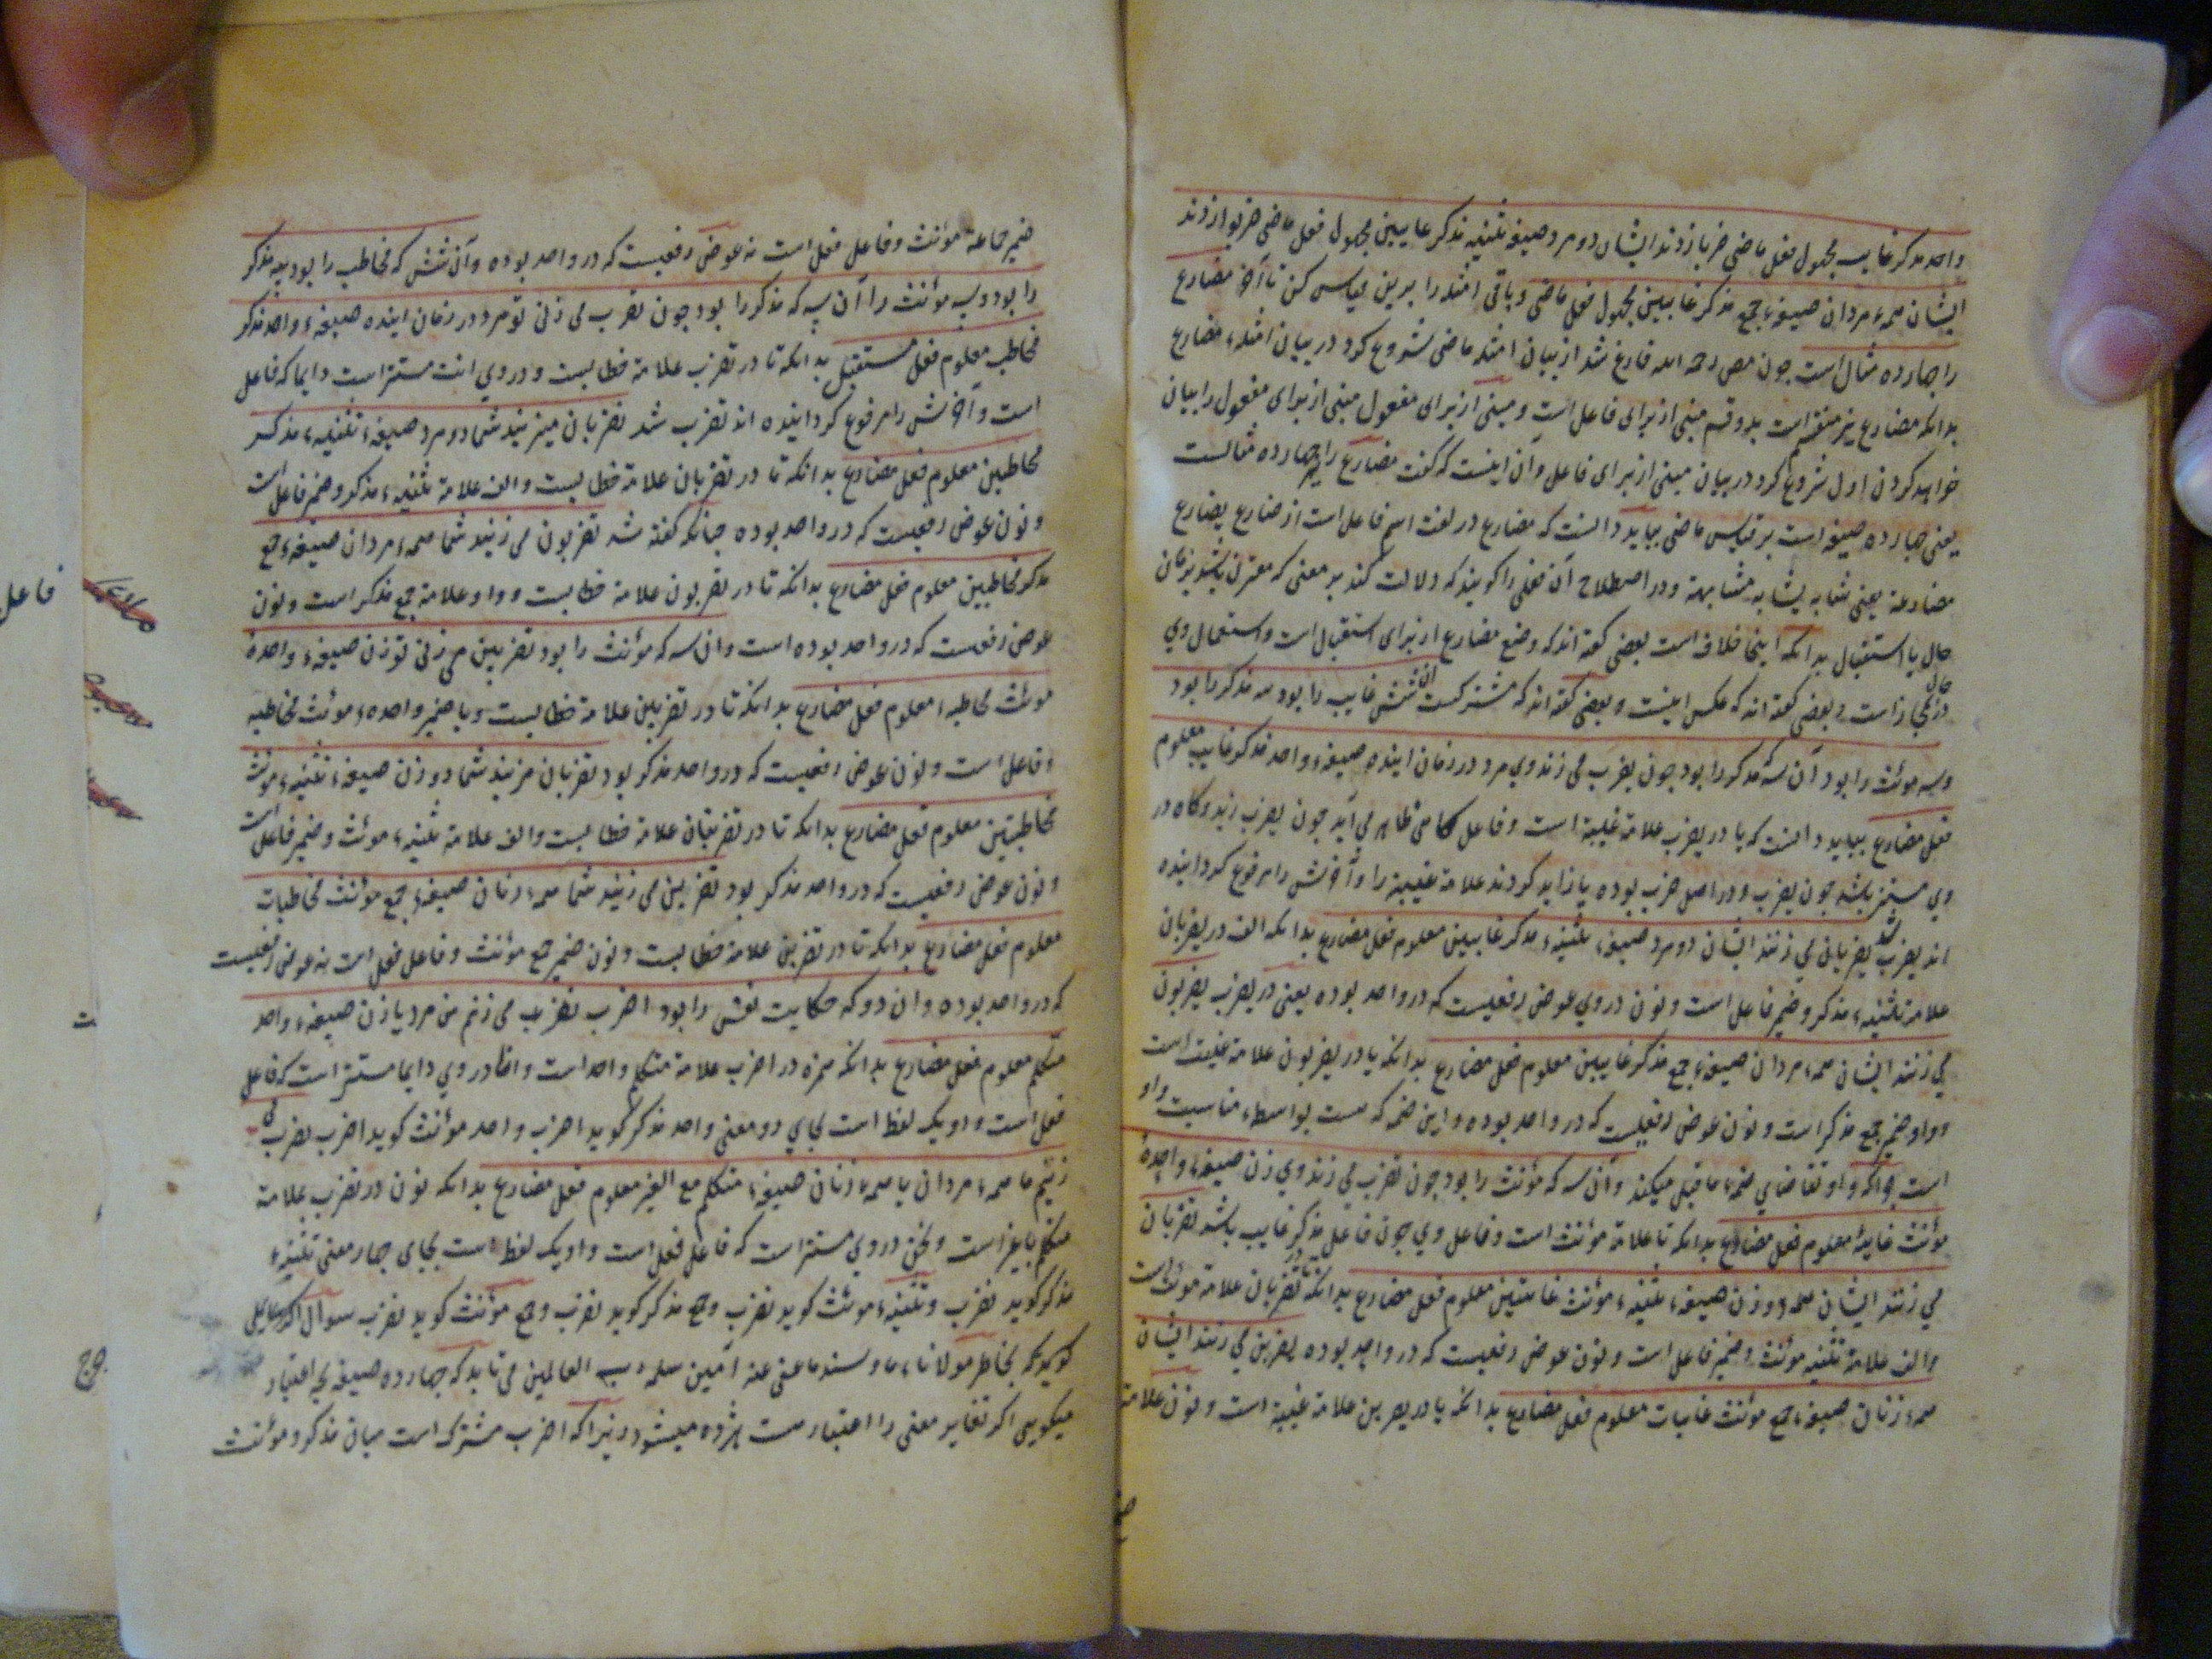 واحد مذکر غایب مجهول فعل ماضی ضربا زدند ایشان دو مرد صیغه تثنیه مذکر غایبین مجهول فعل ماضی ضربوا زدند
ایشان همه مردان صیغهٔ جمع مذکر غایبین مجهول فعل ماضی و باقی امثله را برین قیاس کن تا آخر مضارع
را چهارده مثال است چون مص رحمه الله فارغ شد از بیان امثله ماضی شروع کرد در بیان امثلهٔ مضارع
بدانکه مضارع نیز منقسم است بدو قسم مبنی از برای فاعل است و مبنی از برای مفعول مبنی از برای مفعول را بیان
خواهد کردن اول شروع کرد در بیان مبنی از برای فاعل و آن اینست که گفت مضارع را چهارده مثالست
یعنی چهارده صیغه است بر قیاس ماضی بباید دانست که مضارع در لغت اسم فاعل است از ضارع یضارع
مضارعة یعنی شابه یشابه مشابهة و در اصطلاح آن فعلی را گویند که دلالت کند بر معنی که مقترن باشد بزمان
حال یا استقبال بدانکه اینجا خلاف است بعضی گفته‌اند که وضع مضارع از برای استقبال است و استعمال وی
در حال مجاز است و بعضی گفته‌اند که عکس اینست و بعضی گفته‌اند که مشترکست آن شش غایب را بود سه مذکر را بود
و سه مونث را بود آن سه مذکر را بود چون یضرب می زند وی مرد در زمان اینده صیغهٔ واحد مذکر غایب معلوم
فعل مضارع بباید دانست که یا در یضرب علامة غیبة است و فاعل گاهی ظاهر می آید چون یضرب زید و گاه در
وی مستتر باشد چون یضرب و در اصل ضرب بوده یا زاید کردند علامة غیبة را و آخرش را مرفوع گردانیده
اند یضرب شد یضربان می زنند ایشان دو مرد صیغهٔ تثنیهٔ مذکر غایبین معلوم فعل مضارع بدانکه الف در یضربان
علامة تثنیهٔ مذکر و ضمیر فاعل است و نون در وی عوض رفعیست که در واحد بوده یعنی در یضرب یضربون
می زنند ایشان همه مردان صیغهٔ جمع مذکر غایبین معلوم فعل مضارع بدانکه یا در یضربون علامة غیبت است
و واو ضمیر جمع مذکر است و نون عوض رفعیست که در واحد بوده و این ضمه که هست بواسطهٔ مناسبت واو
است چراکه واو تقاضای ضمهٔ ماقبل میکند و آن سه که مؤنث را بود چون تضرب می زند وی زن صیغهٔ واحدهٔ
مؤنث غایبهٔ معلوم فعل مضارع بدانکه تا علامة مؤنث است و فاعل وی چون فاعل مذکر غایب باشد تضربان
می زنند ایشان همه دو زن صیغهٔ تثنیهٔ مؤنث غایبتین معلوم فعل مضارع بدانکه تا در تضربان علامة مؤنث است
و الف علامة تثنیه مؤنث و ضمیر فاعل است و نون عوض رفعیست که در واحد بوده یضربن می زنند ایشان
همه زنان صیغهٔ جمع مؤنث غایبات معلوم فعل مضارع بدانکه یا در یضربن علامة غیبة است و نون علامة
ضمیر جماعة مؤنث و فاعل فعل است نه عوض رفعیست که در واحد بوده و آن شش که مخاطب را بود سه مذکر
را بود و سه مؤنث را آن سه که مذکر را بود چون تضرب می زنی تو مرد در زمان اینده صیغهٔ واحد مذکر
مخاطب معلوم فعل مستقبل بدانکه تا در تضرب علامة خطابست و در وی انت مستتر است دایما که فاعل
است و آخرش را مرفوع گردانیده اند تضرب شد تضربان میزنید شما دو مرد صیغهٔ تثنیهٔ مذکر
مخاطبین معلوم فعل مضارع بدانکه تا در تضربان علامة خطابست و الف علامة تثنیهٔ مذکر و ضمیر فاعل است
و نون عوض رفعیست که در واحد بوده چنانکه گفته شد تضربون می زنید شما همه مردان صیغهٔ جمع
مذکر مخاطبین معلوم فعل مضارع بدانکه تا در تضربون علامة خطابست و واو علامة جمع مذکر است و نون
عوض رفعست که در واحد بوده است و ان سه که مؤنث را بود تضربین می زنی تو زن صیغهٔ واحدهٔ
موئث مخاطبهٔ معلوم فعل مضارع بدانکه تا در تضربین علامة خطابست و یا ضمیر واحدهٔ موئث مخاطبه
و فاعل است و نون عوض رفعیست که در واحد مذکر بود تضربان میزنید شما دو زن صیغهٔ تثنیهٔ مونث
مخاطبتین معلوم فعل مضارع بدانکه تا در تضربان علامة خطابست و الف علامة تثنیهٔ موئث و ضمیر فاعل است
و نون عوض رفعیست که در واحد مذکر بود تضربن می زنید شما همه زنان صیغهٔ جمع مؤنث مخاطبات
معلوم فعل مضارع بدانکه تا در تضربن علامة خطابست و نون ضمیر جمع مؤنث و فاعل فعل است نه عوض رفعیست
که در واحد بوده و ان دو که حکایت نفس را بود اضرب نضرب می زنم من مرد یا زن صیغهٔ واحد
متکلم معلوم فعل مضارع بدانکه همزه در اضرب علامة متکلم واحد است و انا در وی دایما مستتر است که فاعل
فعل است و او یک لفظ است بجای دو معنی واحد مذکر گوید اضرب و واحد مؤنث گوید اضرب نضرب می
زنیم ما همه مردان یا همه زنان صیغهٔ متکلم مع الغیر معلوم فعل مضارع بدانکه نون در نضرب علامة
متکلم با غیر است و نحن در وی مستتر است که فاعل فعل است و او یک لفظ است بجای چهار معنی تثنیهٔ
مذکر گوید نضرب و تثنیهٔ موئث گوید نضرب و جمع مذکر گوید نضرب و جمع مؤنث گوید نضرب سوال اگر سایلی
گوید که بخاطر مولانا ما و سندما عفی عنه آمین العالمین می تابد که چهارده صیغه بچه اعتبار
میگویی اگر تغایر معنی را اعتبارست هژده میشود زیرا که اضرب مشترک است میان مذکر و مؤنث
فاعل